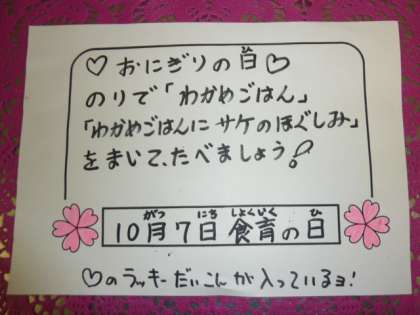 ♡おにぎりの日♡
のりで「わかめごはん」
「わかめごはんにサケのほぐしみ」
をまいて、たべましょう!
10月7日食育の日
♡のラッキーだいこんが入っているヨ!